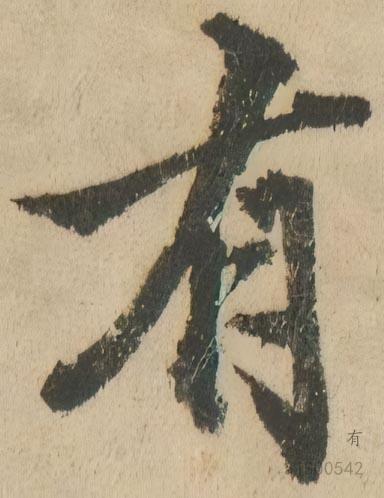 有
有
1500542